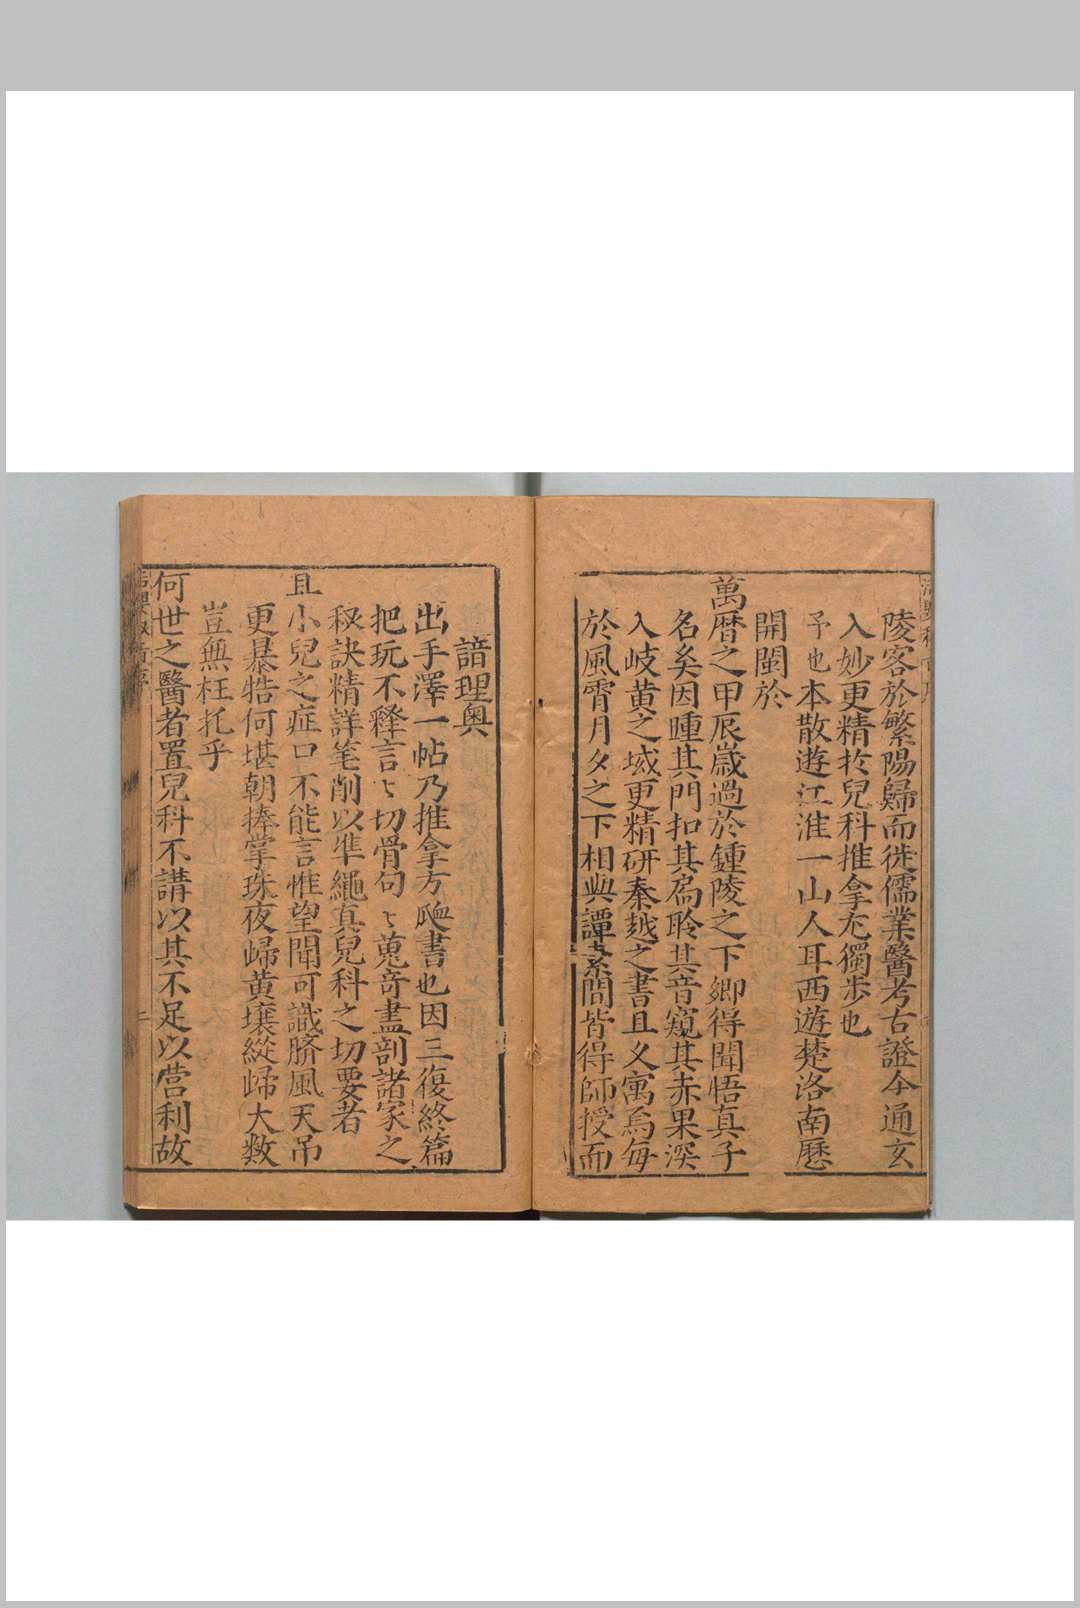 陵客於繁陽歸而従儒業醫考古證今通玄
入妙更精扵兒科推拿尤獨步也
予也本散遊江淮一山人耳西遊楚洛南歷
開閩於
萬暦之甲辰嵗過於鍾陵之下卿得聞悟真子
名矣因踵其門扣其扃聆其音窺其赤果深
入岐黄之域更精研秦越之書且又寓焉每
於風霄月夕之下相與譚間皆得師授而
諳理奥
出手澤一帖乃推拿方脉書也因三復終篇
把玩不釋言〻切骨句〻蒐竒盡剖諸家之
秘訣精詳笔削以準繩真兒科之切要者
且
小兒之症口不能言惟望聞可識臍風天吊
更暴牿何堪朝捧掌珠夜㱕黄壤縱㱕大数
豈無枉托乎
何世之醫者置兒科不講以其不足以营利故